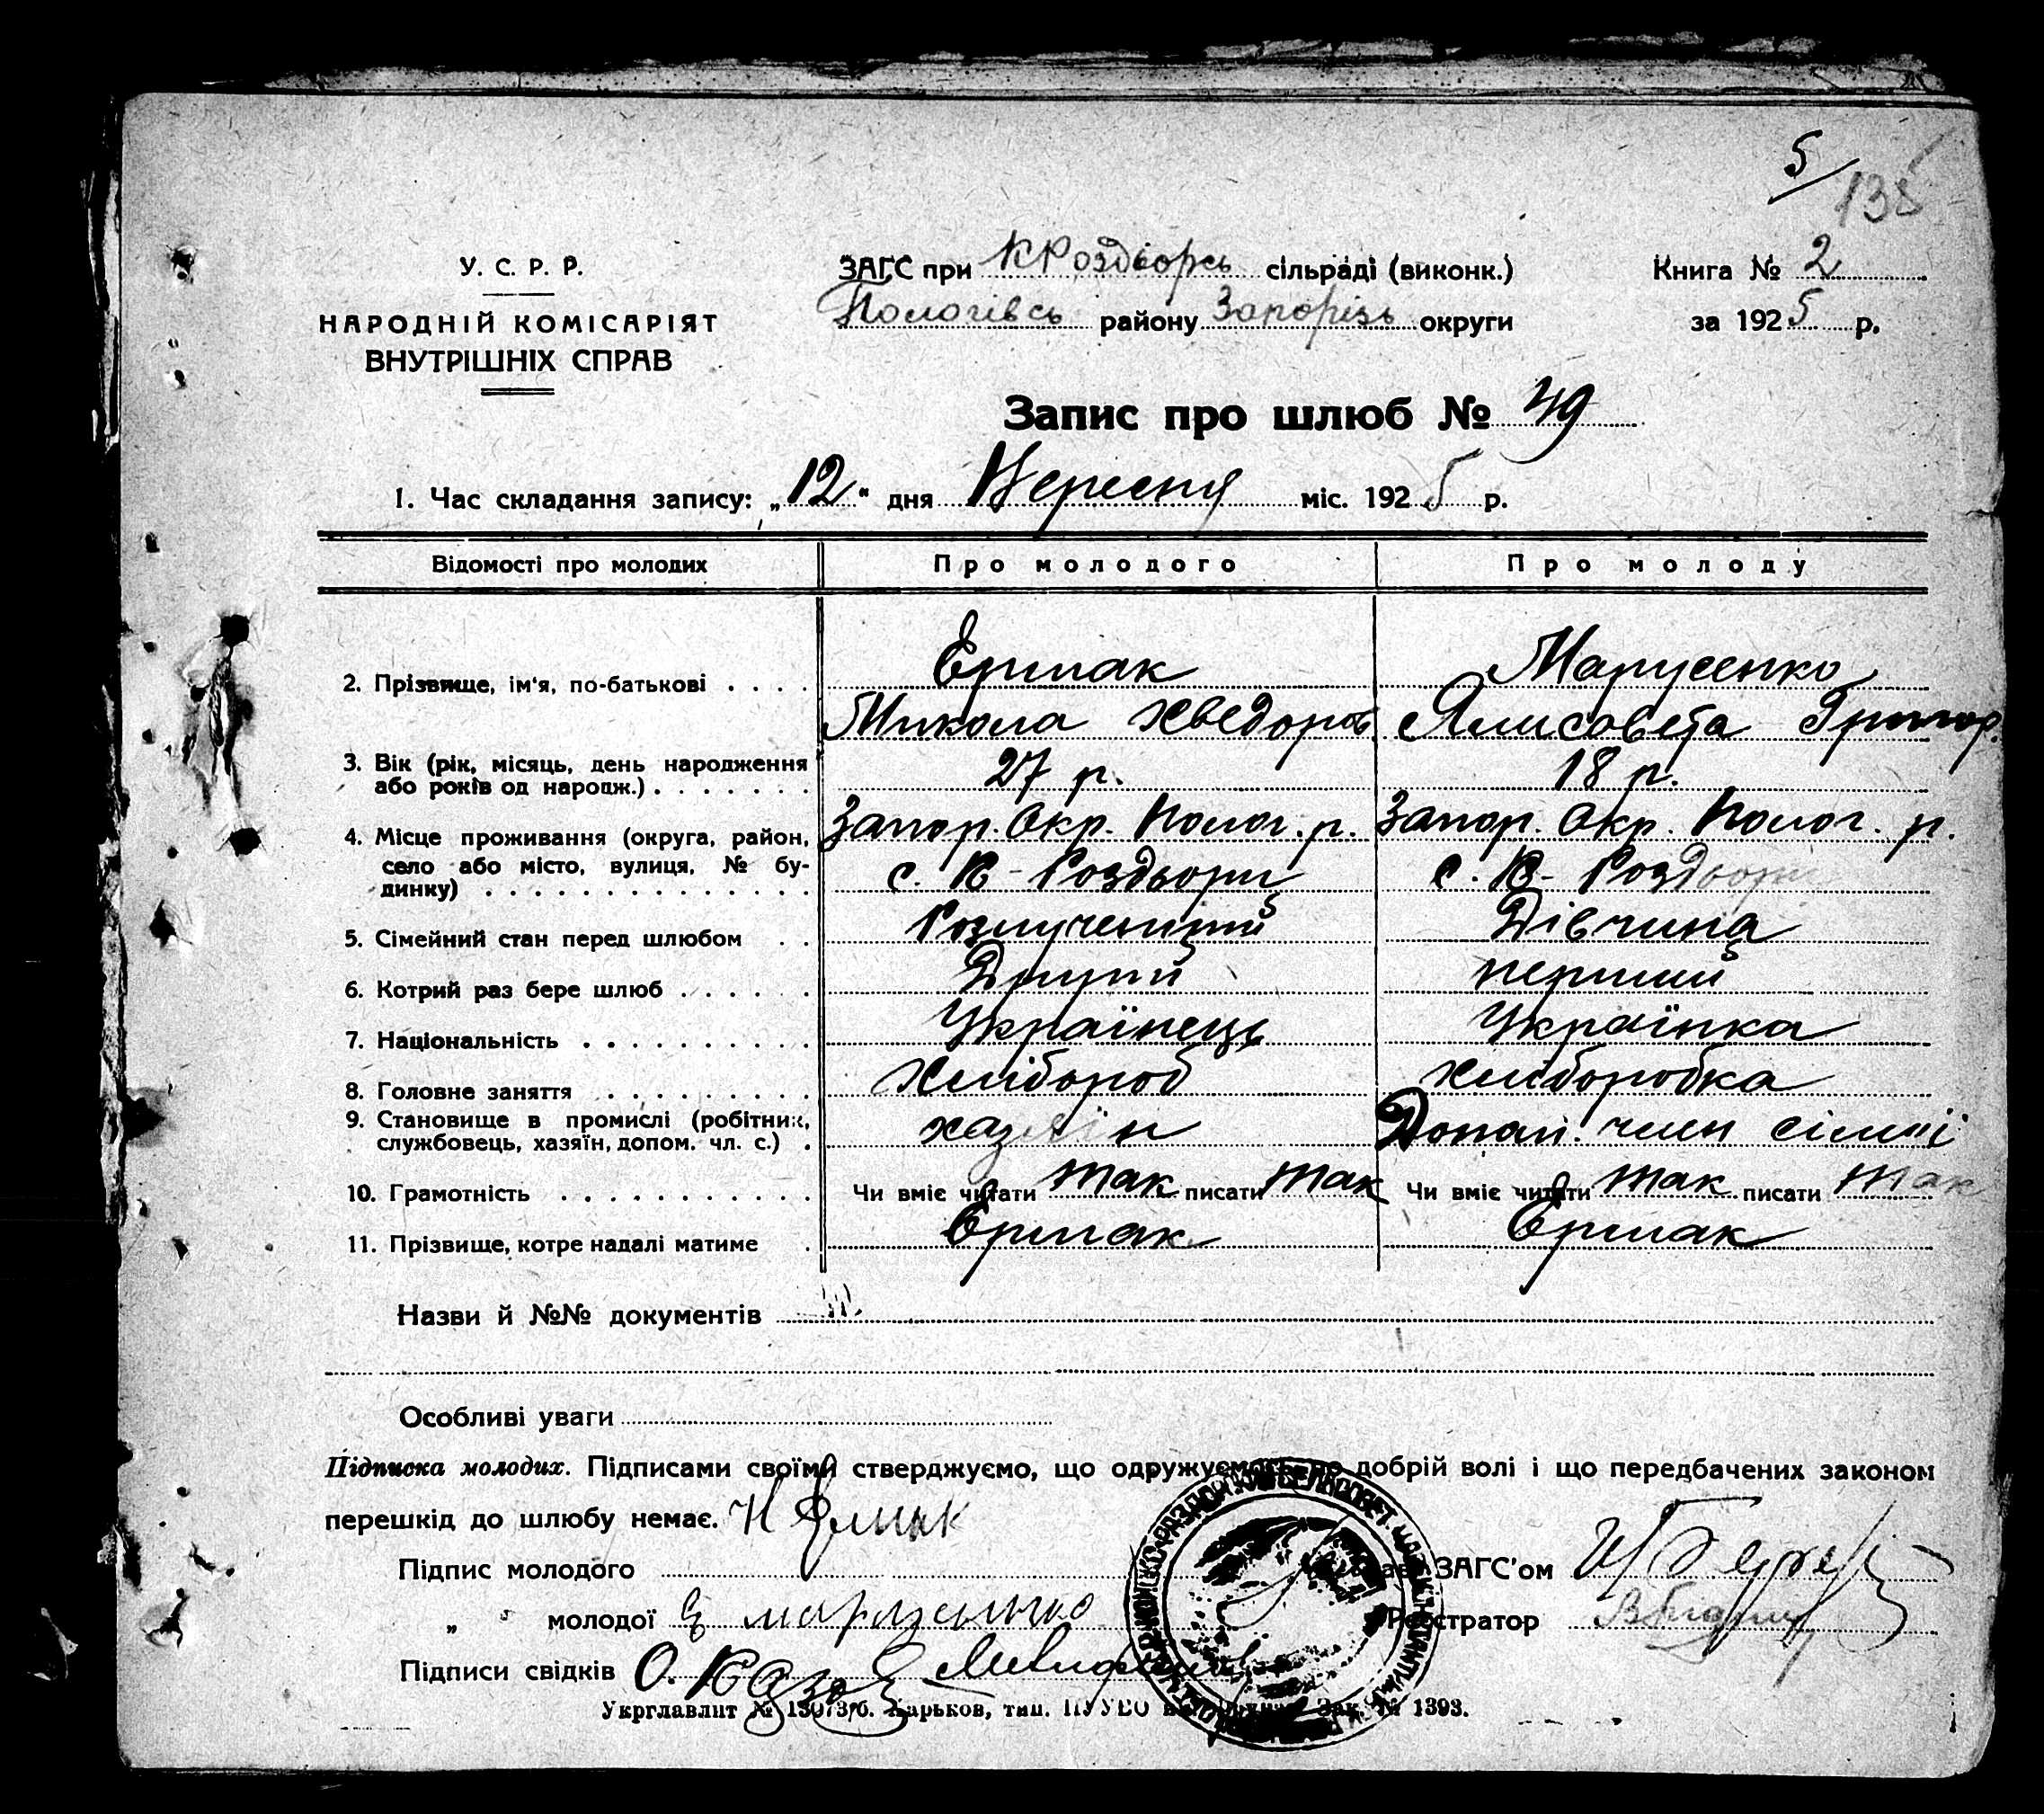 5/
135
У. С. Р. Р.
НАРОДНІЙ КОМІСАРІЯТ
ВНУТРІШНІХ СПРАВ
ЗАГС при КРоздьорсь сільраді (виконк.)
Пологівсь району Запорізь округи
Книга № 2
за 1925 р.
Запис про шлюб № 49
1. Час складання запису: „12" дня Вересня міс. 1925 р.
Відомості про молодих Про молодого Про молоду
2. Прізвище, ім'я, по-батькові . . . . Ермак Марусенко
Микола Хведоров Ялисовета Григор.
3. Вік (рік, місяць, день народження або років од народж.) . . . . . . . 27 р. 18 р.
4. Місце проживання (округа, район, село або місто, вулиця, № будинку) . . . . . . . . . . . . . . Запор. Окр. Полог. р. Запор. Окр. Полог. р.
с. К-Роздьори с. К-Роздьори
5. Сімейний стан перед шлюбом . . Розлученний Дівчина
6. Котрий раз бере шлюб . . . . . . Другий перший
7. Національність . . . . . . . . . . Українець Українка
8. Головне заняття . . . . . . . . . Хлібороб хлiборобка
9. Становище в промислі (робітник, службовець, хазяїн, допом. чл. с.) . хазяїн Допом. член сімьі
10. Грамотність . . . . . . . . . . . Чи вміє читати так писати так Чи вміє читати так писати так
11. Прізвище, котре надалі матиме . Ермак Ермак
Назви й №№ документів
Особливі уваги
Підписка молодих. Підписами своїми стверджуємо, що одружуємось по добрій волі і що передбачених законом
перешкід до шлюбу немає. Н Ермак
Підпис молодого ЗАГС'ом
„ молодої Е марусенко Реєстратор
Підписи свідків О.
Укрглавліт № 13073/б. Харьков, тип. Зак. № 1393.